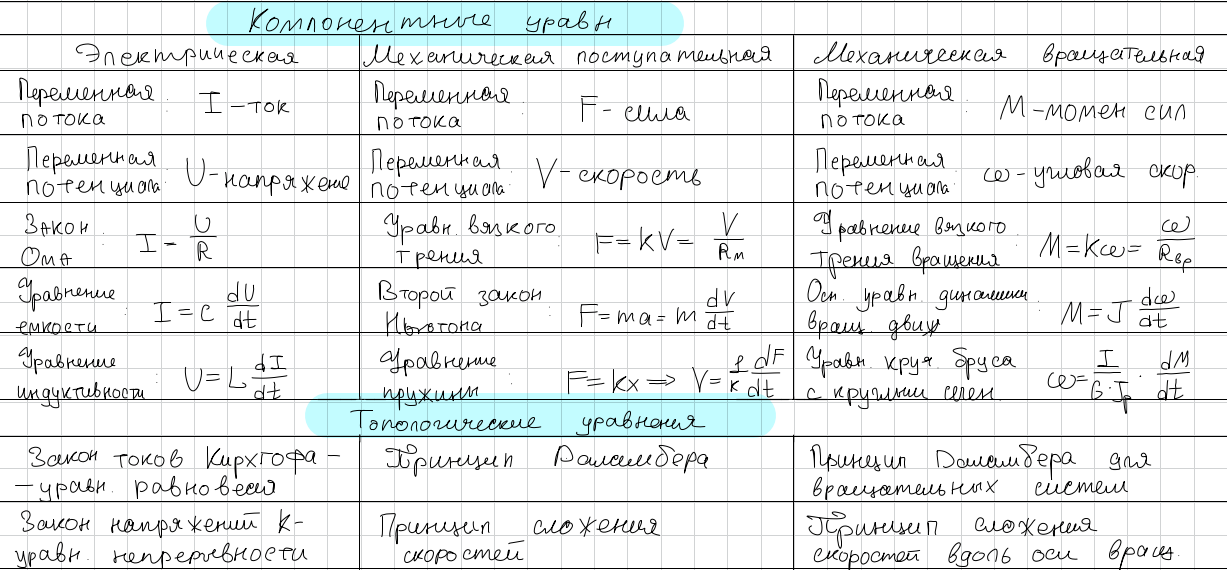 Компонентные уравн
Электрическая Механическая поступательная Механическая вращательная
Переменная потока: I - ток
Переменная потока: F - сила
Переменная потока: M - момен сил
Переменная потенциала: U - напряжене
Переменная потенциала: V - скорость
Переменная потенциала: ω - угловая скор.
Закон Ома: I = U/R
Уравн. вязкого трения: F = kV = V/Rм
Уравнение вязкого трения вращения: M = Kω = ω/Rвр
Уравнение емкости: I = C dU/dt
Второй закон Ньютона: F = ma = m dV/dt
Осн. уравн. динамики вращ. движ: M = J dω/dt
Уравнение индуктивности: U = L dI/dt
Уравнение пружины: F = kx => V = 1/k dF/dt
Уравн. круч. бруса с круглым сечен.: ω = I/(G·Jp) · dM/dt
Топологические уравнения
Закон токов Кирхгофа -
- уравн. равновесия
Принцип Даламбера
Принцип Даламбера для
вращательных систем
Закон напряжений К-
уравн. непрерывности
Принцип сложения
скоростей
Принцип сложения
скоростей вдоль оси вращ.